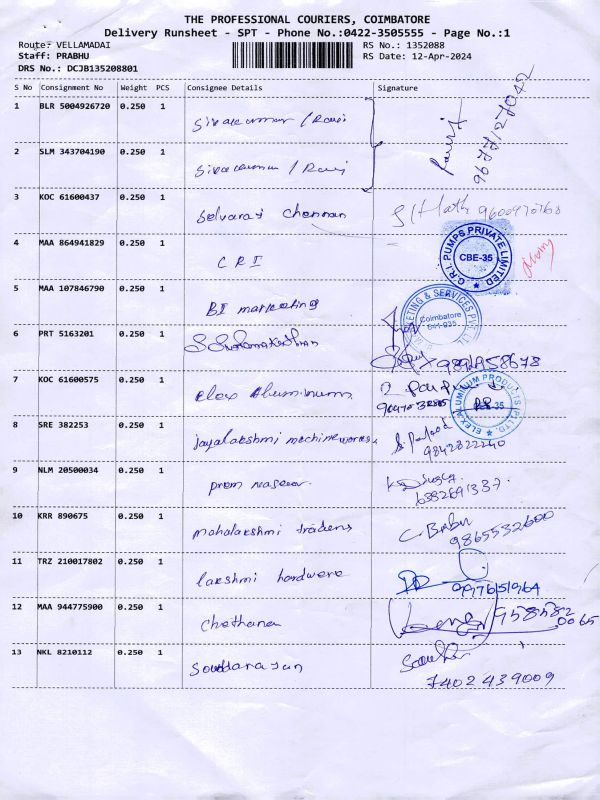 THE PROFESSIONAL COURIERS, COIMBATORE
Delivery Runsheet - SPT - Phone No.:0422-3505555 - Page No.:1
Route: VELLAMADAI RS No.: 1352088
Staff: PRABHU RS Date: 12-Apr-2024
DRS No.: DCJB135208801
S No Consignment No Weight PCS Consignee Details Signature
1 BLR 5004926720 0.250 1 Sivakumar / Ravi
2 SLM 343704190 0.250 1 Sivakumar / Ravi
3 KOC 61600437 0.250 1 Selvaraj Chennan
4 MAA 864941829 0.250 1 CRI C.R.I. PUMPS PRIVATE LIMITED CBE-35
5 MAA 107846790 0.250 1 BI marketing MARKETING & SERVICES PVT. LTD. Coimbatore 641 035
6 PRT 5163201 0.250 1
7 KOC 61600575 0.250 1 Elex Aluminum ELEX ALUMINIUM PRODUCTS (P) LTD. CBE-35
8 SRE 382253 0.250 1 Jayalakshmi machine works 9842822240
9 NLM 20500034 0.250 1 prem
10 KRR 890675 0.250 1 mahalakshmi traders C. Babu
9865532600
11 TRZ 210017802 0.250 1 lakshmi hardware
12 MAA 944775900 0.250 1 Chethana
13 NKL 8210112 0.250 1 Soundarajan
7402439009